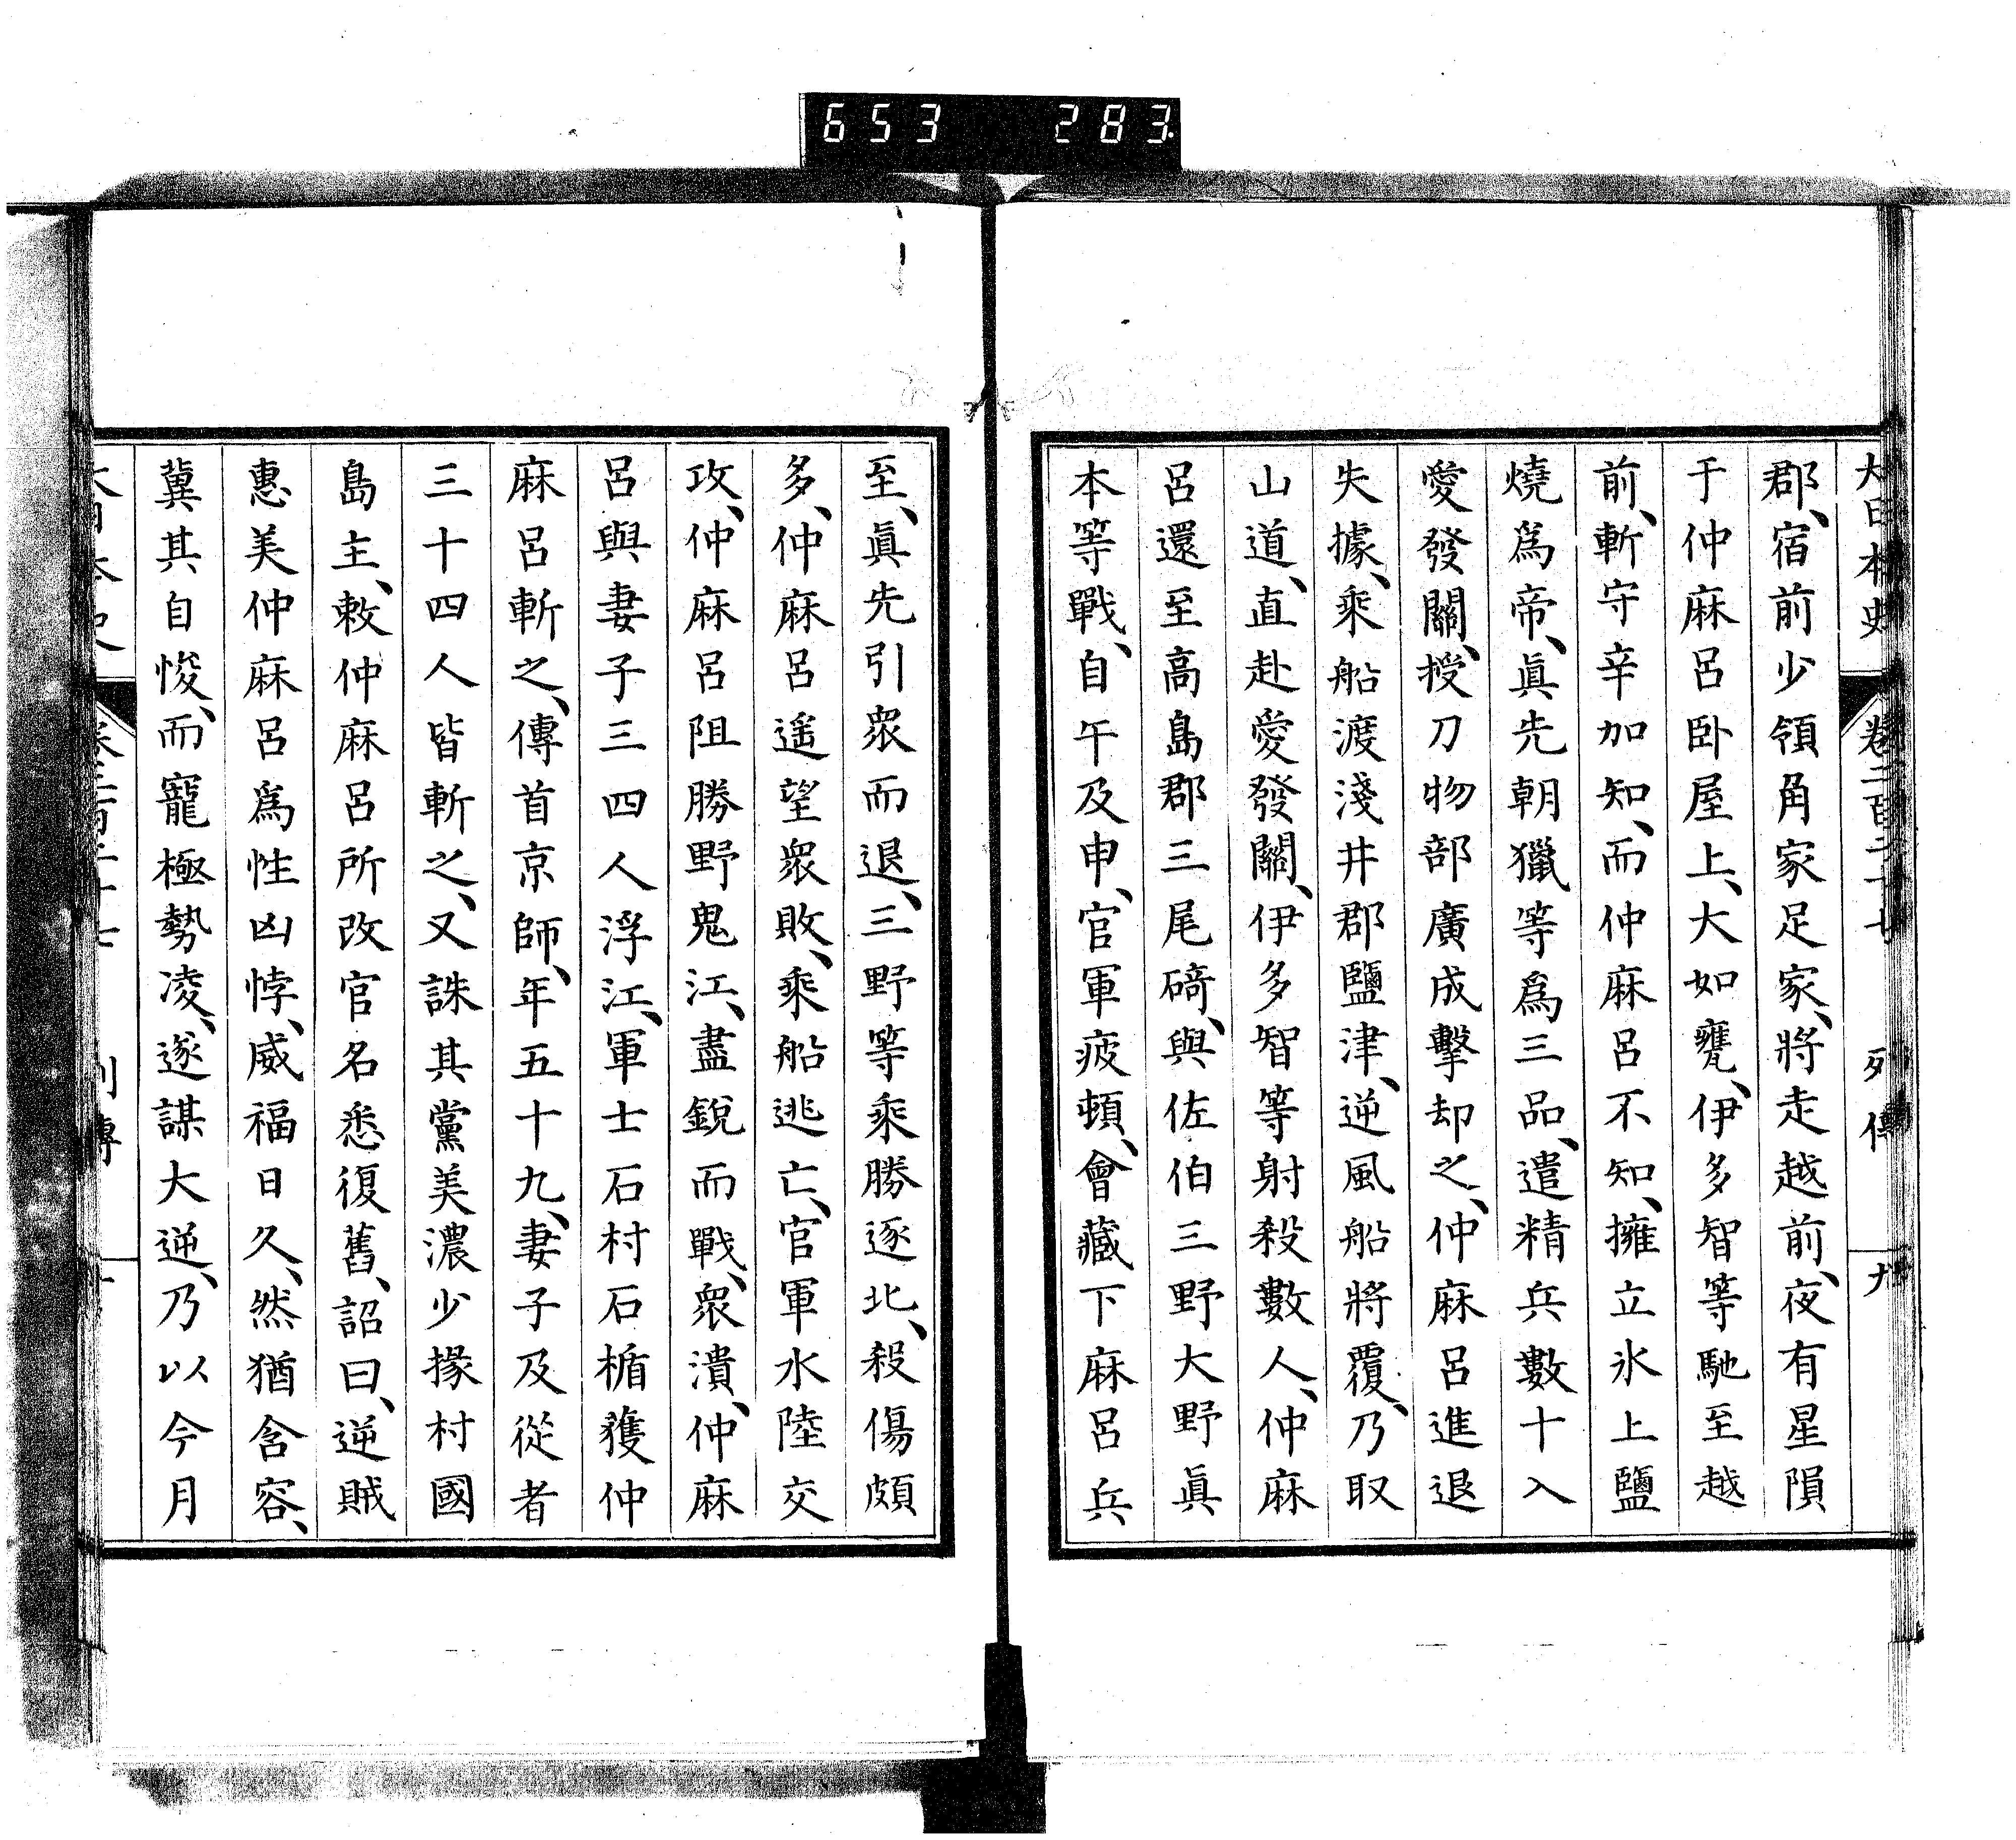 653 283
大日本史 卷二百二十七 列傳 九
郡、宿前少領角家足家、將走越前、夜有星隕
于仲麻呂卧屋上、大如甕、伊多智等馳至越
前、斬守辛加知、而仲麻呂不知、擁立氷上鹽
燒爲帝、眞先朝獵等爲三品、遣精兵數十入
愛發關、授刀物部廣成擊却之、仲麻呂進退
失據、乘船渡淺井郡鹽津、逆風船將覆、乃取
山道、直赴愛發關、伊多智等射殺數人、仲麻
呂還至高島郡三尾碕、與佐伯三野大野眞
本等戰、自午及申、官軍疲頓、會藏下麻呂兵
至、眞先引衆而退、三野等乘勝逐北、殺傷頗
多、仲麻呂遥望衆敗、乘船逃亡、官軍水陸交
攻、仲麻呂阻勝野鬼江、盡銳而戰、衆潰、仲麻
呂與妻子三四人浮江、軍士石村石楯獲仲
麻呂斬之、傳首京師、年五十九、妻子及從者
三十四人皆斬之、又誅其黨美濃少掾村國
島主、敕仲麻呂所改官名悉復舊、詔曰、逆賊
惠美仲麻呂爲性凶悖、威福日久、然猶含容、
冀其自悛、而寵極勢凌、遂謀大逆、乃以今月